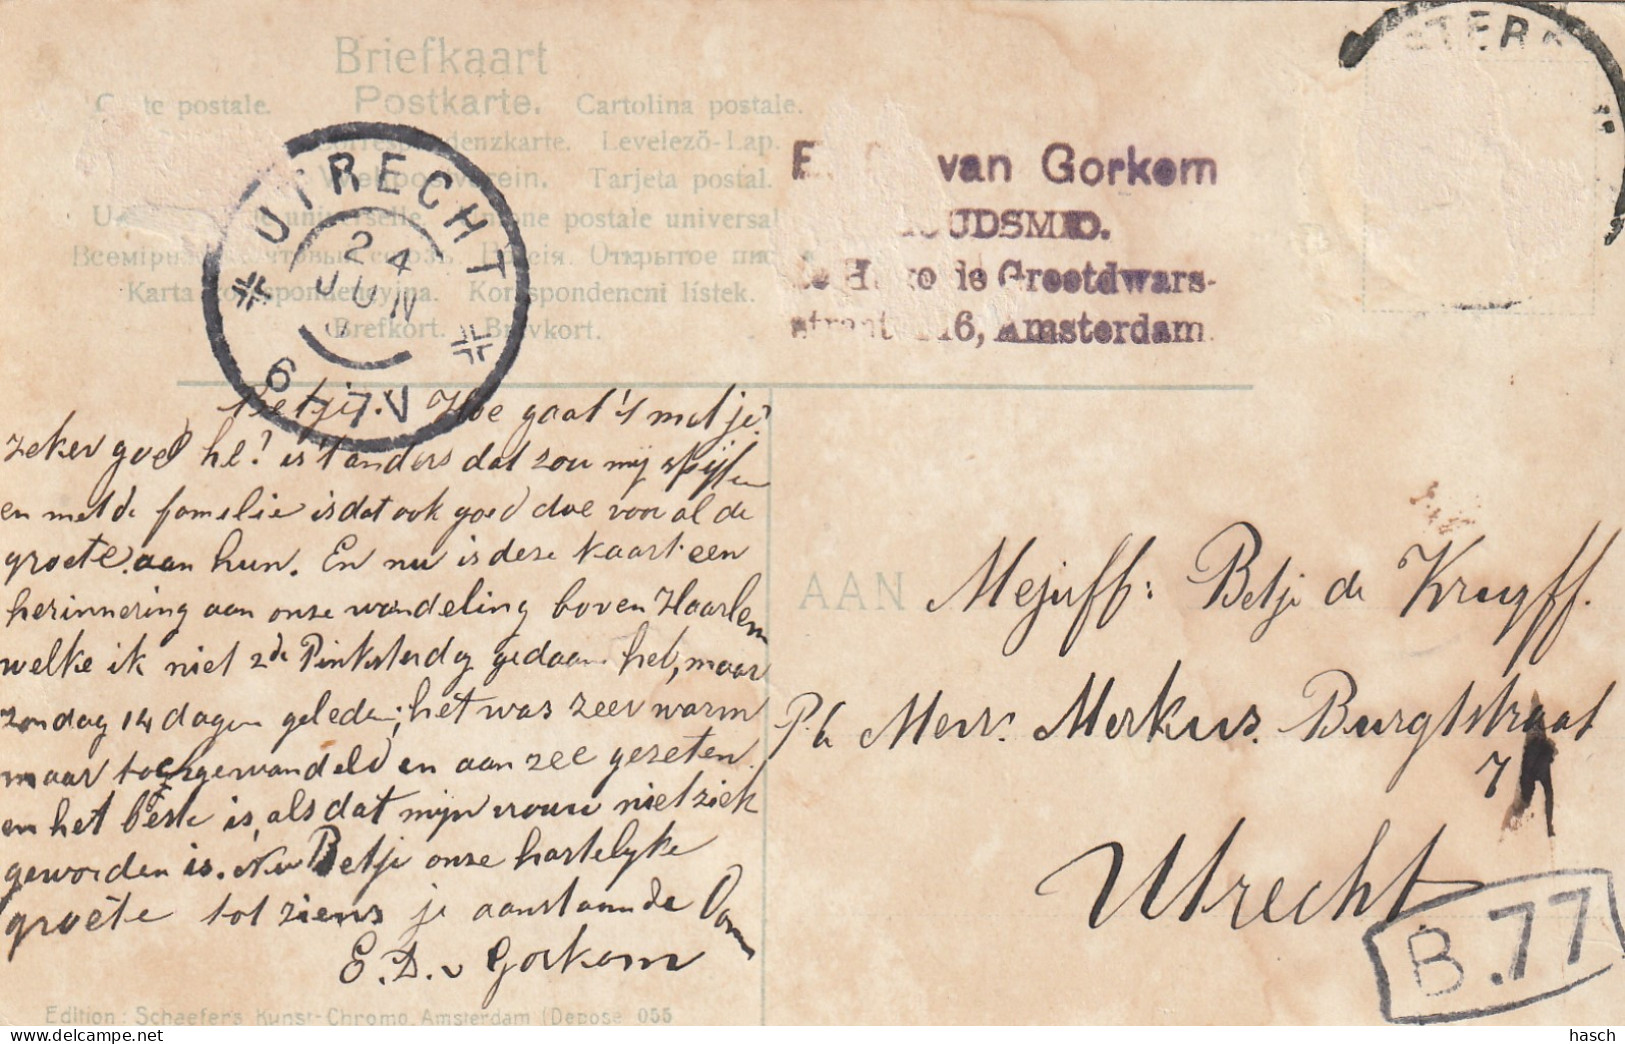 Briefkaart
Postkarte.
postale. Cartolina postale.
Levelező-Lap.
Tarjeta postal.
universelle. postale universal
Всемірн союзъ. Россія. Открытое
Karta korespondencyjna. Korespondencni lístek.
Brefkort. Brevkort.
UTRECHT
24
JUN
6 - 7V
van Gorkem
OUDSMID.
Grootdwars-
16, Amsterdam.
Betje. Hoe gaat 't met je?
zeker goed he! is 't anders dat zou mij spijten
en met de familie is dat ook goed doe voor al de
groete aan hun. En nu is deze kaart een
herinnering aan onze wandeling boven Haarlem
welke ik niet 2de Pinksterdag gedaan heb, maar
zondag 14 dagen geleden; het was zeer warm
maar toch gewandeld en aan zee gezeten.
en het beste is, als dat mijn vrouw niet ziek
geworden is. Nu Betje onze hartelyke
groete tot ziens je aanstaande Oom
E. D. v Gorkom
AAN Mejuff: Betje de Kruyff.
P.a Merr. Merkus. Burgtstraat
7
Utrecht
B.77
Edition: Schaefer's Kunst-Chromo, Amsterdam (Depose 055
hasch